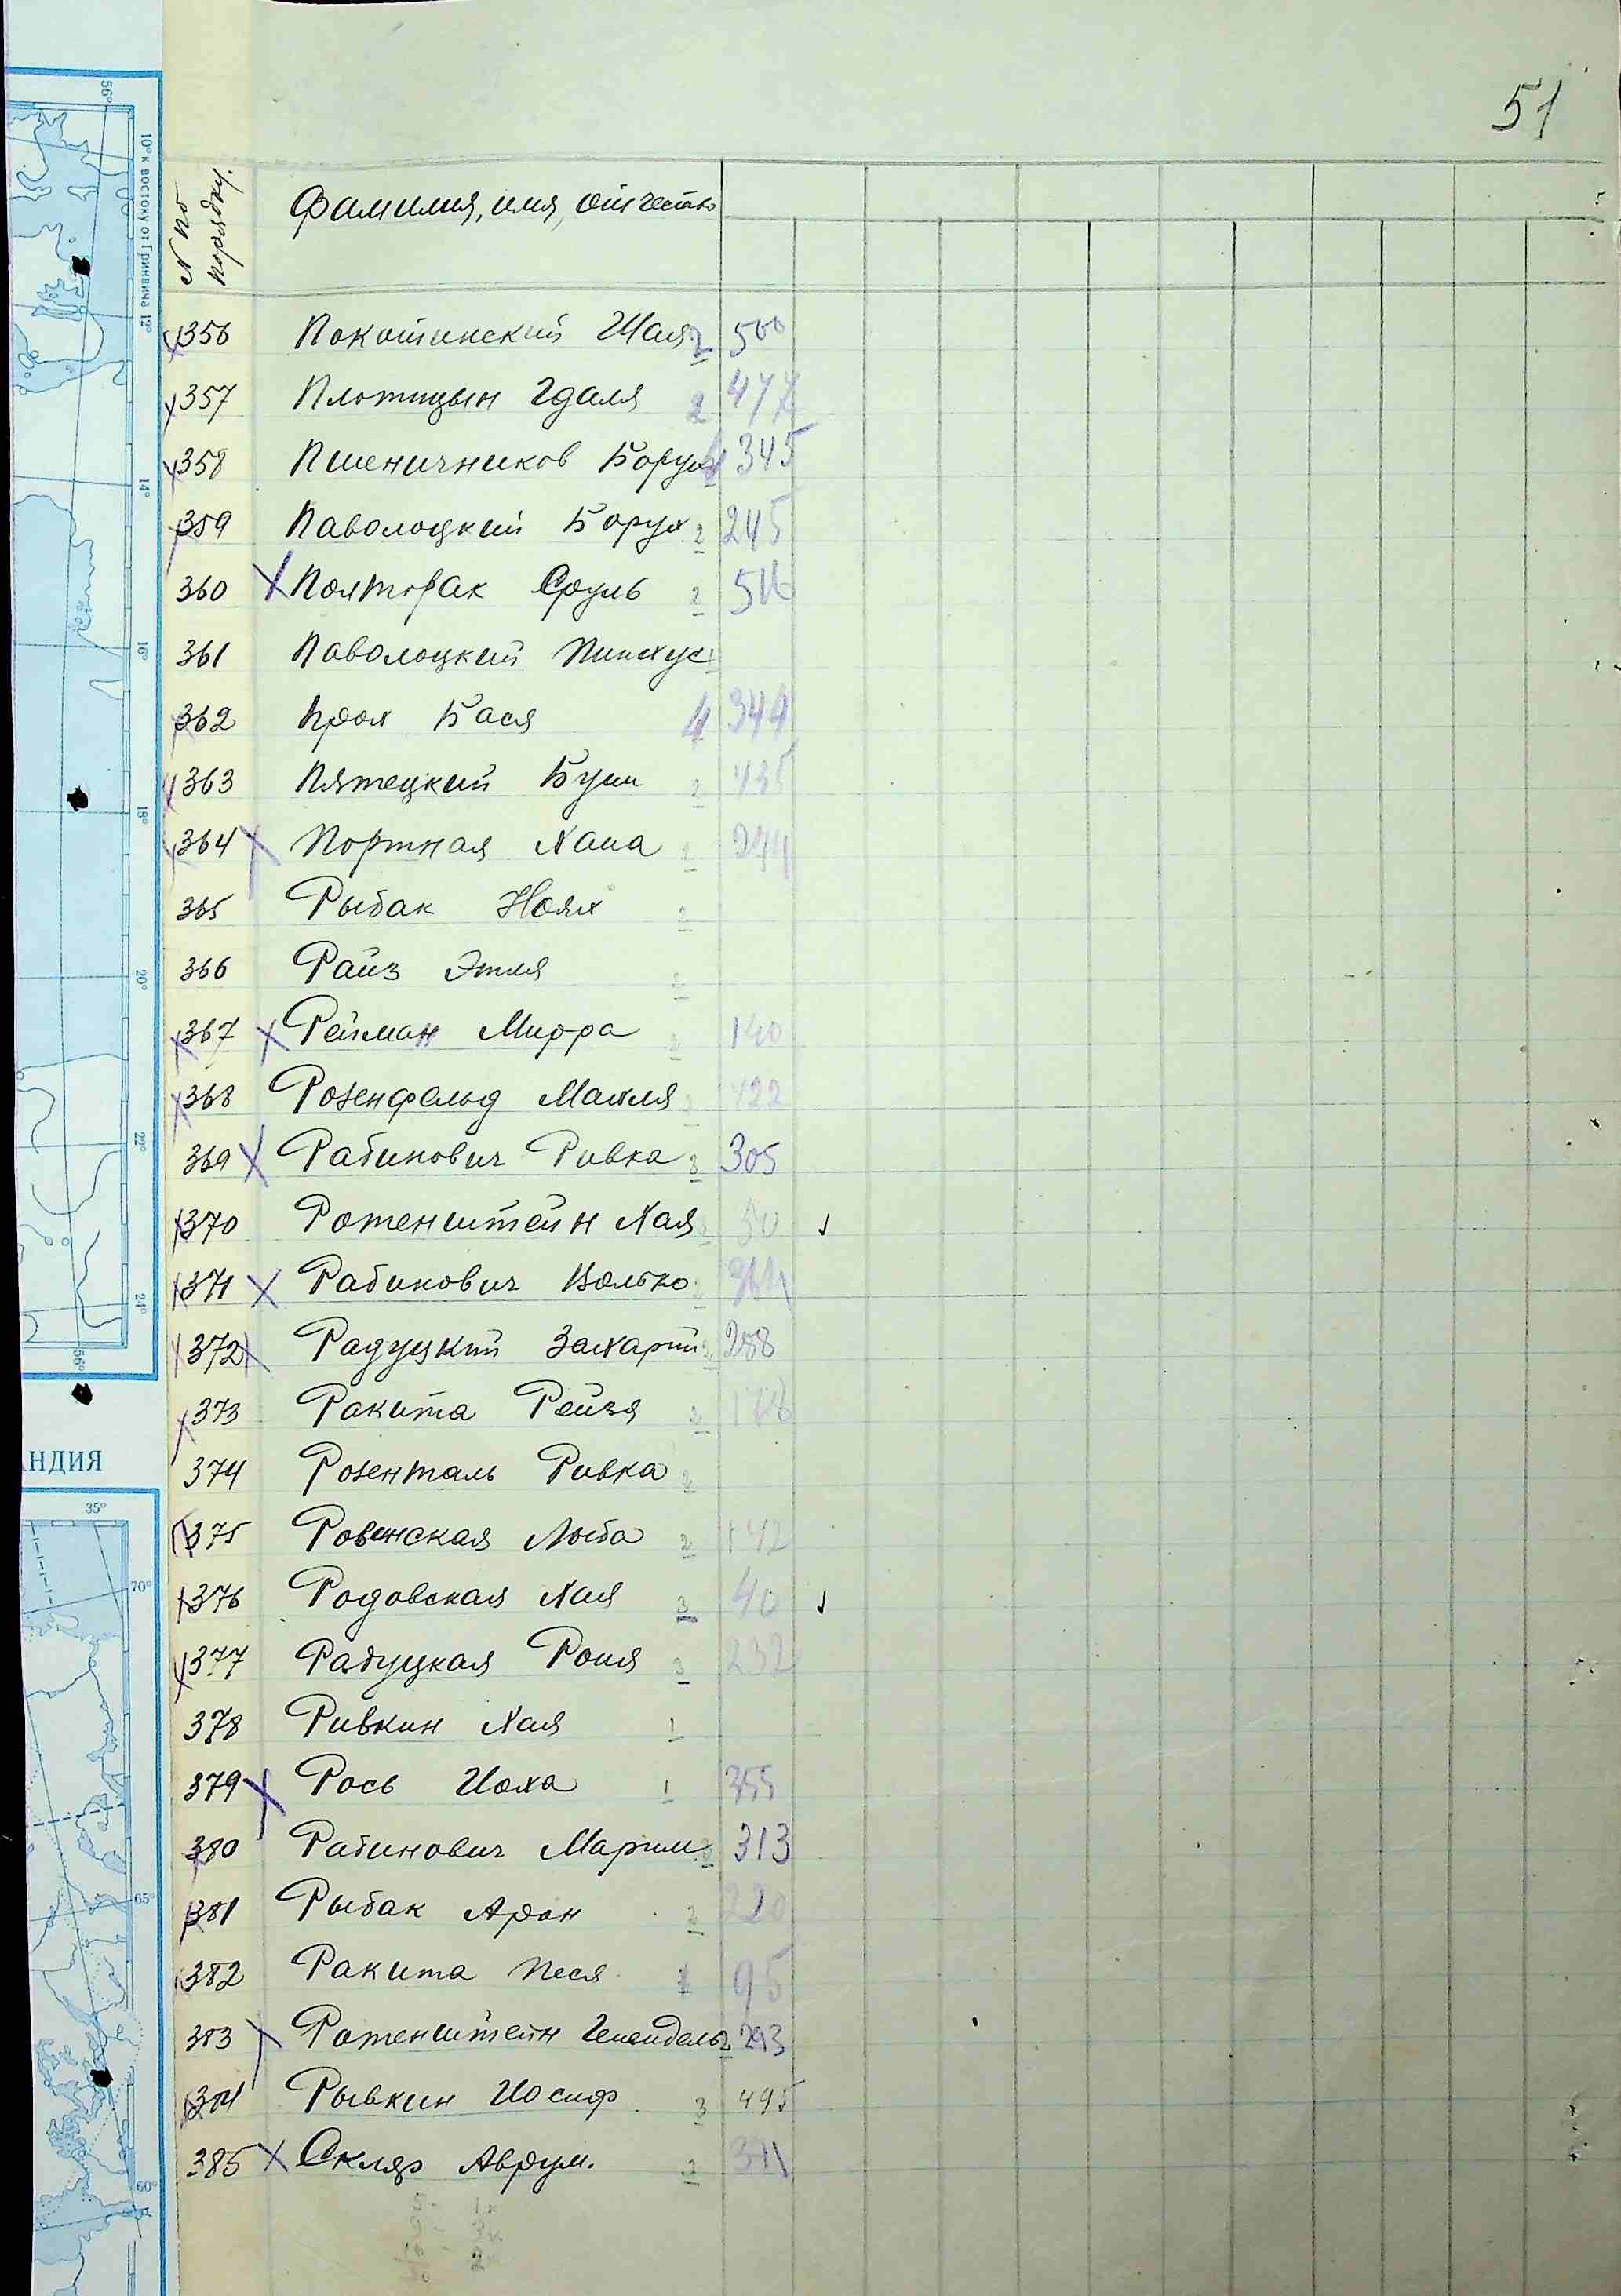 51
56°
10° к востоку от Гринвича 12°
14°
16°
18°
20°
22°
24°
56°
НДИЯ
35°
70°
65°
60°
N по порядку.
Фамилия, имя, отчество
356 Покотинский Шая 2 500
357 Плотицын Гдаля 2 477
358 Пшеничников Борух 345
359 Паволоцкий Борух 2 245
360 Полторак Сруль 2 516
361 Паволоцкий Пинхус 1
362 Прох Бася 4 344
363 Пятецкий Бузи 2 435
364 Портная Хана 2 244
365 Рыбак Ноях 2
366 Райз Этля 2
367 Рейман Мирра 2 140
368 Розенфельд Махля 422
369 Рабинович Ривка 3 305
370 Ротенштейн Хая 50 ✓
371 Рабинович Волько
372 Радуцкий Захарий 2 288
373 Ракита Рейзя 2 178
374 Розенталь Ривка 2
375 Ровенская Люба 2 142
376 Родовская Хая 3 40 ✓
377 Радуцкая Роня 3 232
378 Ривкин Хая 1
379 Рось Иоха 1 355
380 Рабинович Марим 313
381 Рыбак Арон 2 220
382 Ракита Песя 1 95
383 Ротенштейн Генендель 2 293
384 Рывкин Иосиф 3 495
385 Скляр Аврум. 2 371